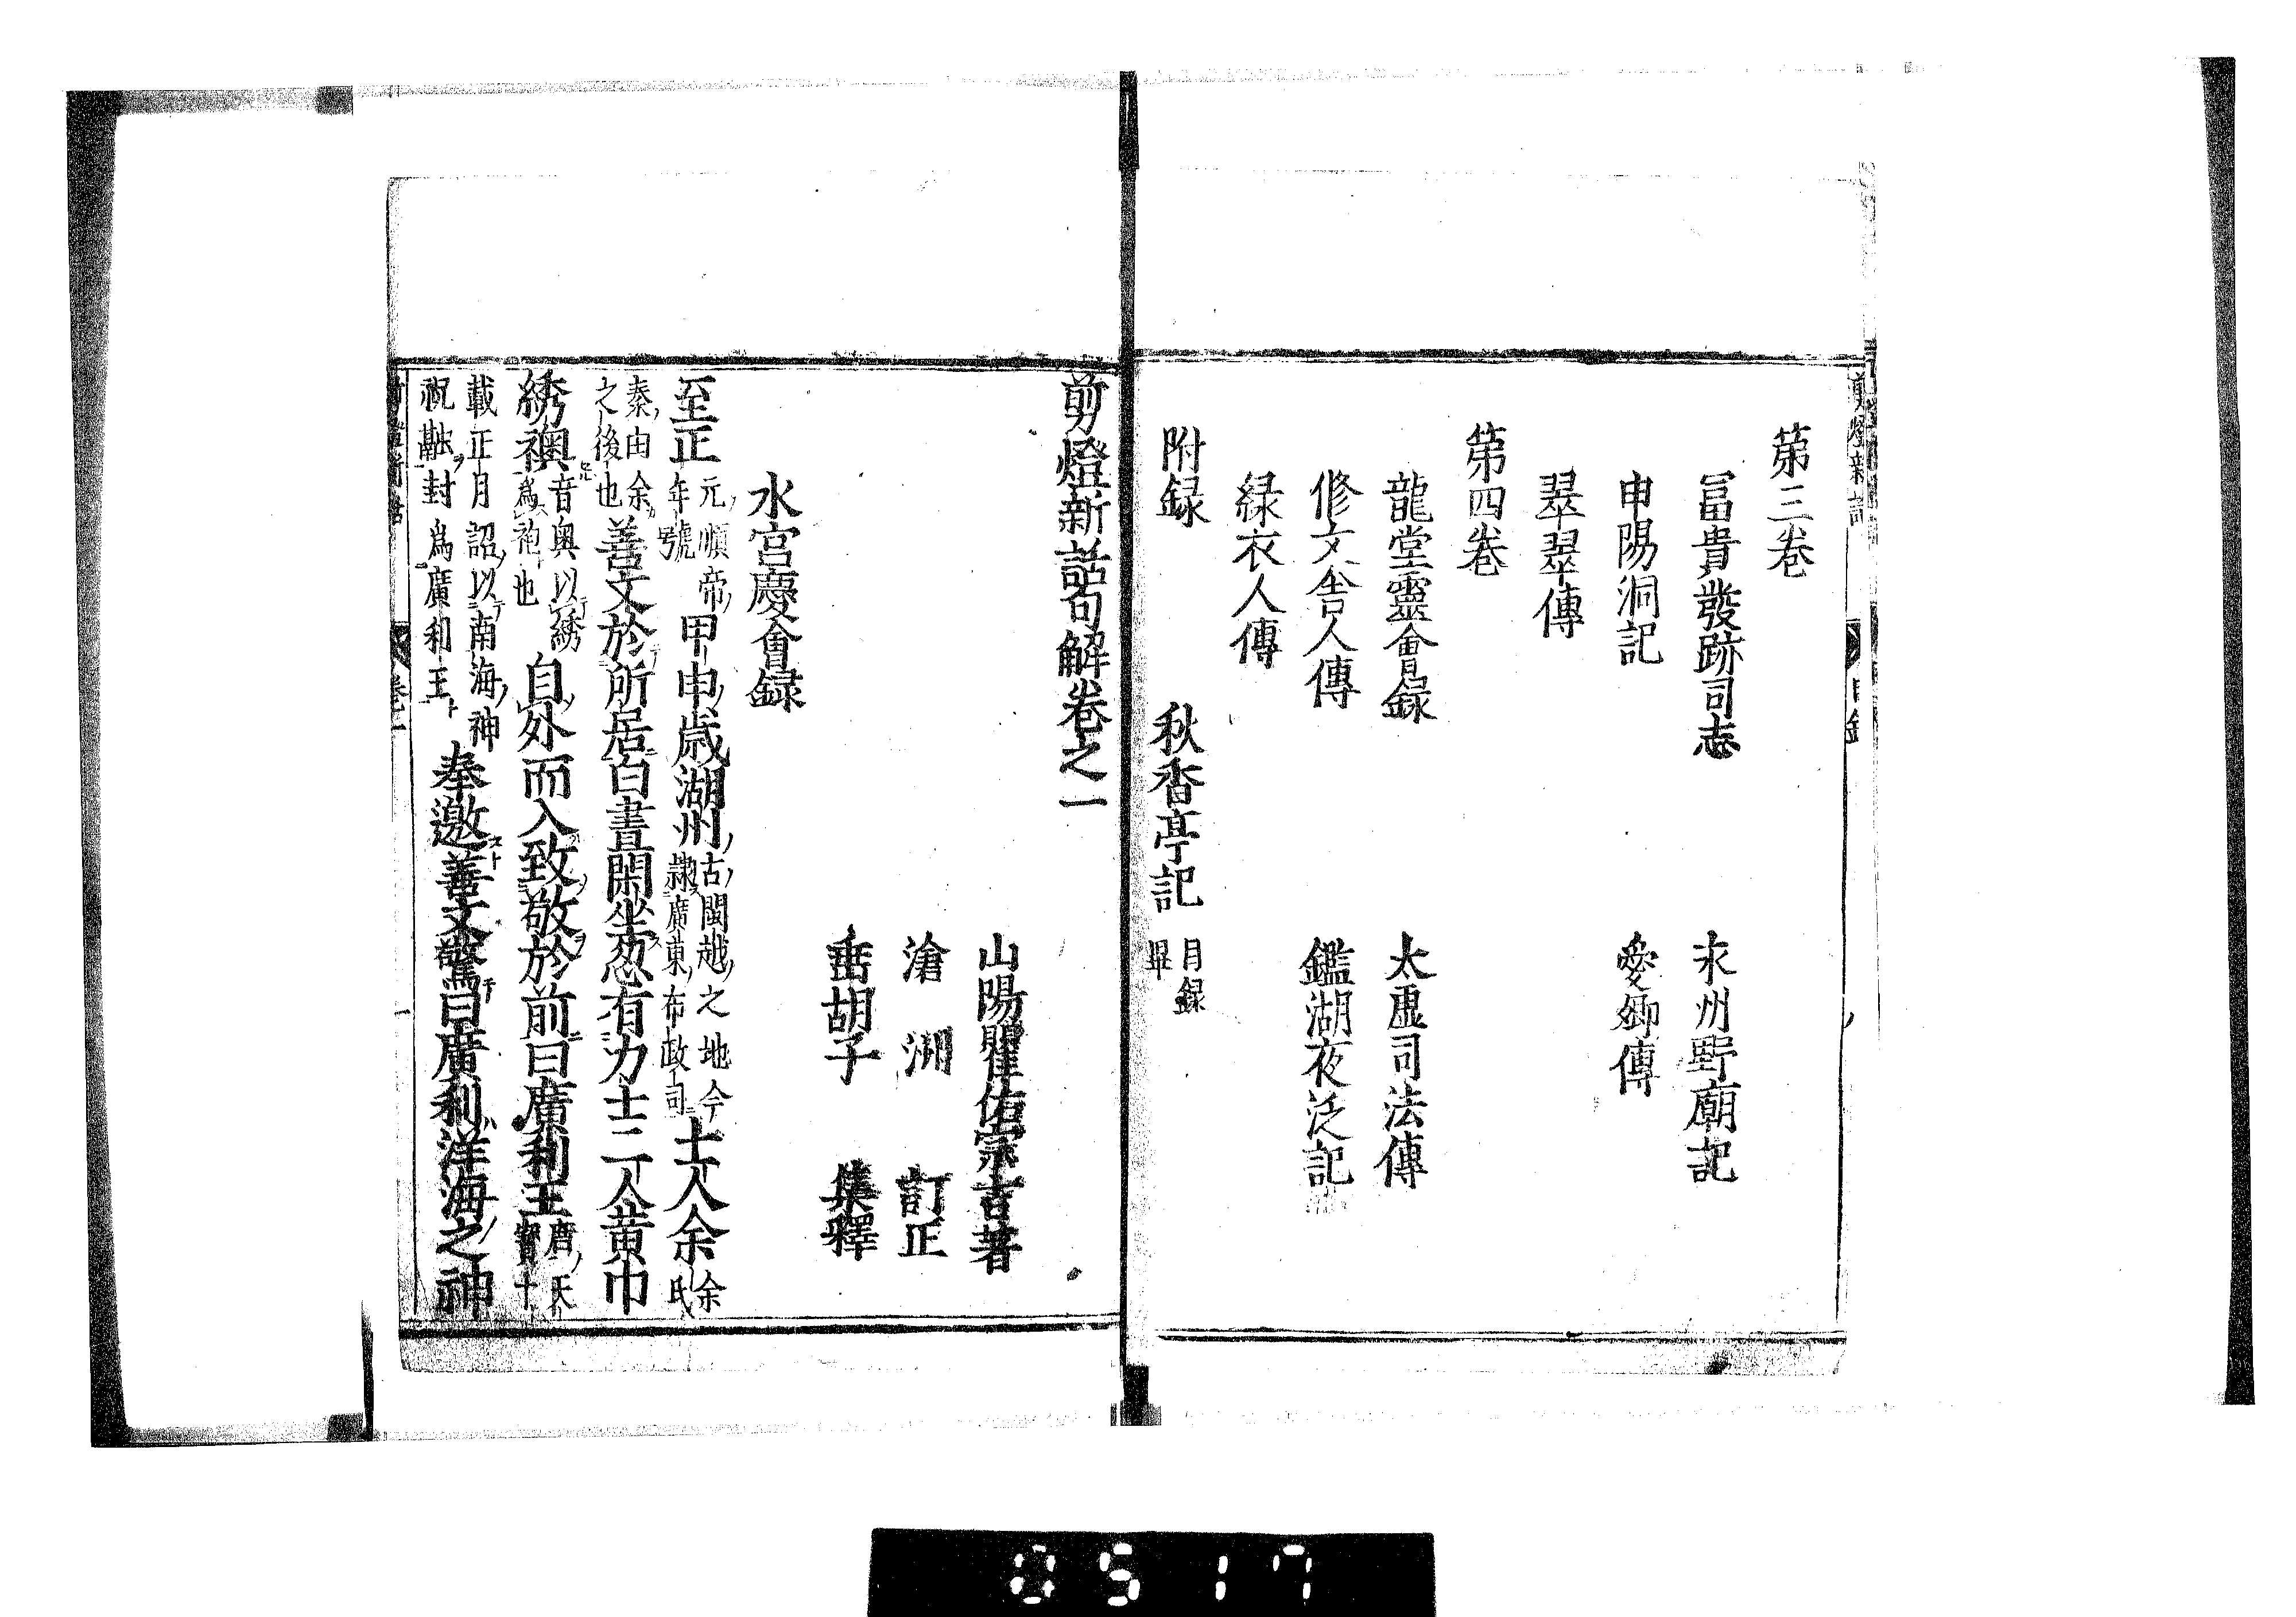 第三卷
冨貴發跡司志　永州野廟記
申陽洞記　愛卿傳
翠翠傳
第四卷
龍堂靈會録　太虛司法傳
修文舎人傳　鑑湖夜泛記
緑衣人傳
附録　秋香亭記　目録畢
剪燈新話句解卷之一
山陽瞿佑宗吉著
滄洲　訂正
垂胡子　集釋
水宮慶會録
至正元順帝年號甲申歳湖州古閩越之地今隷廣東布政司士人余余氏
秦由余之後也善文於所居白晝閑坐忽有力士二人黄巾
綉襖音奥以綉爲袍也自外而入致敬於前曰廣利王唐天寶十
載正月詔以南海神祝融封爲廣利王奉邀善文驚曰廣利洋海之神
0517